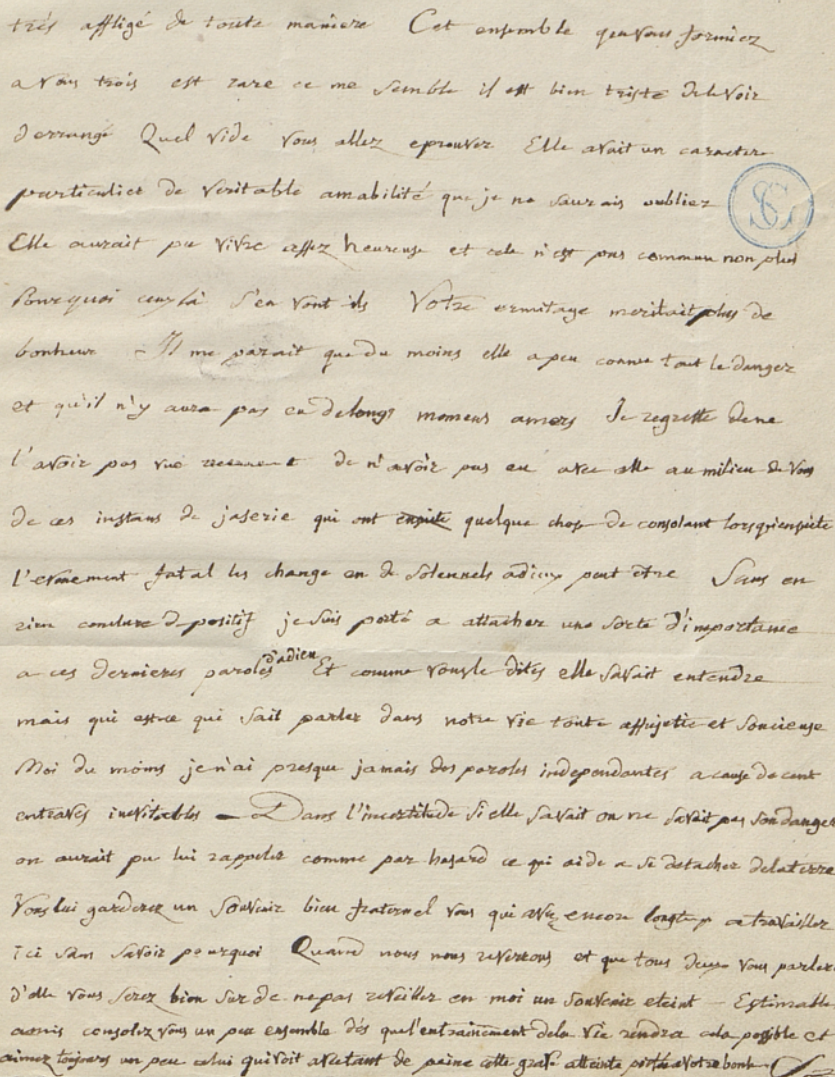 très affligé de toute maniere Cet ensemble que vous formiez
a vous trois est rare ce me semble il est bien triste de le voir
derrangé Quel vide vous allez eprouver Elle avait un caractere
particulier de veritable amabilité que je ne saurais oublier
Elle aurait pu vivre assez heureuse et cela n'est pas commun non plus
Pourquoi ceux là s'en vont ils Votre ermitage meritait plus de
bonheur Il me parait que du moins elle a peu connu tout le danger
et qu'il n'y aura pas eu de longs momens amers Je regrette de ne
l'avoir pas vue de n'avoir pas eu avec elle au milieu de vous
de ces instans de jaserie qui ont ensuite quelque chose de consolant lorsqu'ensuite
l'evenement fatal les change en de solennels adieux peut etre Sans en
rien conclure de positif je suis porté a attacher une sorte d'importance
a ces dernieres paroles d'adieu Et comme vous le dites elle savait entendre
mais qui est-ce qui sait parler dans notre vie toute assujetie et soucieuse
Moi du moins je n'ai presque jamais des paroles independantes a cause de cent
entraves inevitables — Dans l'incertitude si elle savait ou ne savait pas son danger
on aurait pu lui rappeler comme par hasard ce qui aide a se detacher de la terre
Vous lui garderez un souvenir bien fraternel vous qui avez encore longtemps a travailler
ici sans savoir pourquoi Quand nous nous reverrons et que tous deux vous parlerez
d'elle vous serez bien sur de ne pas reveiller en moi un souvenir eteint — Estimable
amis consolez vous un peu ensemble dès que l'entrainement de la vie rendra cela possible et
aimez toujours un peu celui qui voit avec tant de peine cette grave atteinte portée a votre bonh